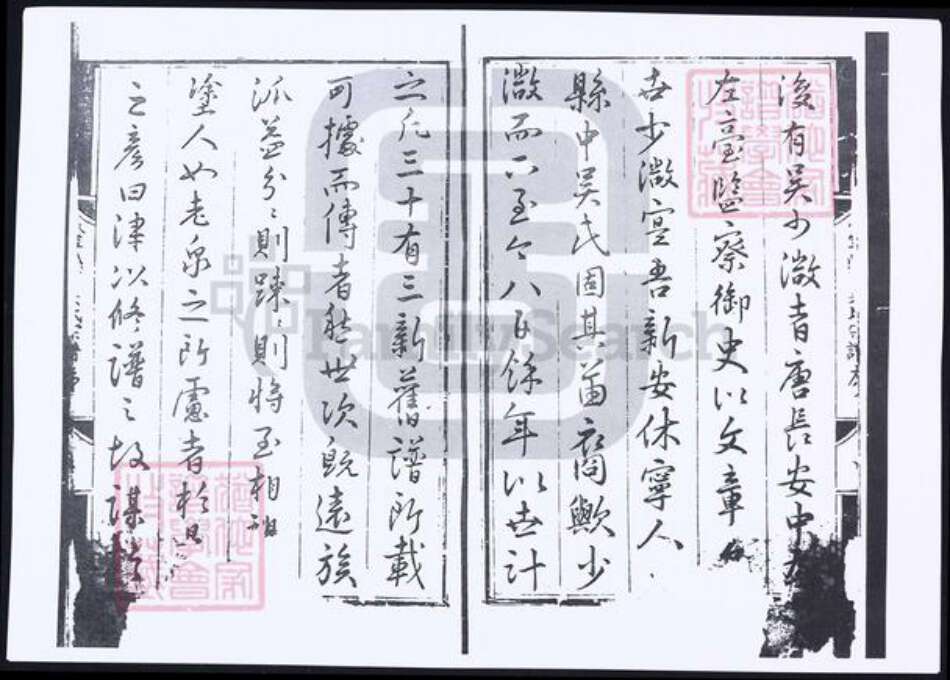 後有吳少微者唐長安中
左臺監察御史以文章
世少微寔吾新安休寧人
縣中吳氏固其苗裔歟少
微而下至今八百餘年以世計
之凡三十有三新舊譜所載
可據而傳者然世次既遠族
派益分分則疎疎則將至相視
塗人如老泉之所慮者於是
之彥曰津以修譜之故謀
FamilySearch